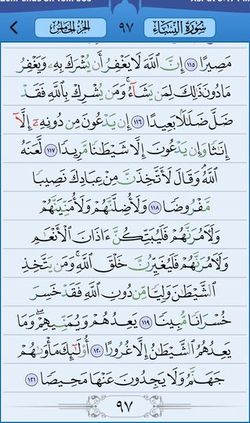 سُورَةُ النِّسَاءِ ٩٧ الجزء الخامس
مَصِيرًا ١١٥ إِنَّ ٱللَّهَ لَا يَغْفِرُ أَن يُشْرَكَ بِهِۦ وَيَغْفِرُ
مَا دُونَ ذَٰلِكَ لِمَن يَشَآءُ ۚ وَمَن يُشْرِكْ بِٱللَّهِ فَقَدْ
ضَلَّ ضَلَٰلًۢا بَعِيدًا ١١٦ إِن يَدْعُونَ مِن دُونِهِۦٓ إِلَّآ
إِنَٰثًا وَإِن يَدْعُونَ إِلَّا شَيْطَٰنًا مَّرِيدًا ١١٧ لَّعَنَهُ
ٱللَّهُ ۘ وَقَالَ لَأَتَّخِذَنَّ مِنْ عِبَادِكَ نَصِيبًا
مَّفْرُوضًا ١١٨ وَلَأُضِلَّنَّهُمْ وَلَأُمَنِّيَنَّهُمْ
وَلَءَامُرَنَّهُمْ فَلَيُبَتِّكُنَّ ءَاذَانَ ٱلْأَنْعَٰمِ
وَلَءَامُرَنَّهُمْ فَلَيُغَيِّرُنَّ خَلْقَ ٱللَّهِ ۚ وَمَن يَتَّخِذِ
ٱلشَّيْطَٰنَ وَلِيًّا مِّن دُونِ ٱللَّهِ فَقَدْ خَسِرَ
خُسْرَانًا مُّبِينًا ١١٩ يَعِدُهُمْ وَيُمَنِّيهِمْ ۖ وَمَا
يَعِدُهُمُ ٱلشَّيْطَٰنُ إِلَّا غُرُورًا ١٢٠ أُو۟لَٰٓئِكَ مَأْوَىٰهُمْ
جَهَنَّمُ وَلَا يَجِدُونَ عَنْهَا مَحِيصًا ١٢١
٩٧